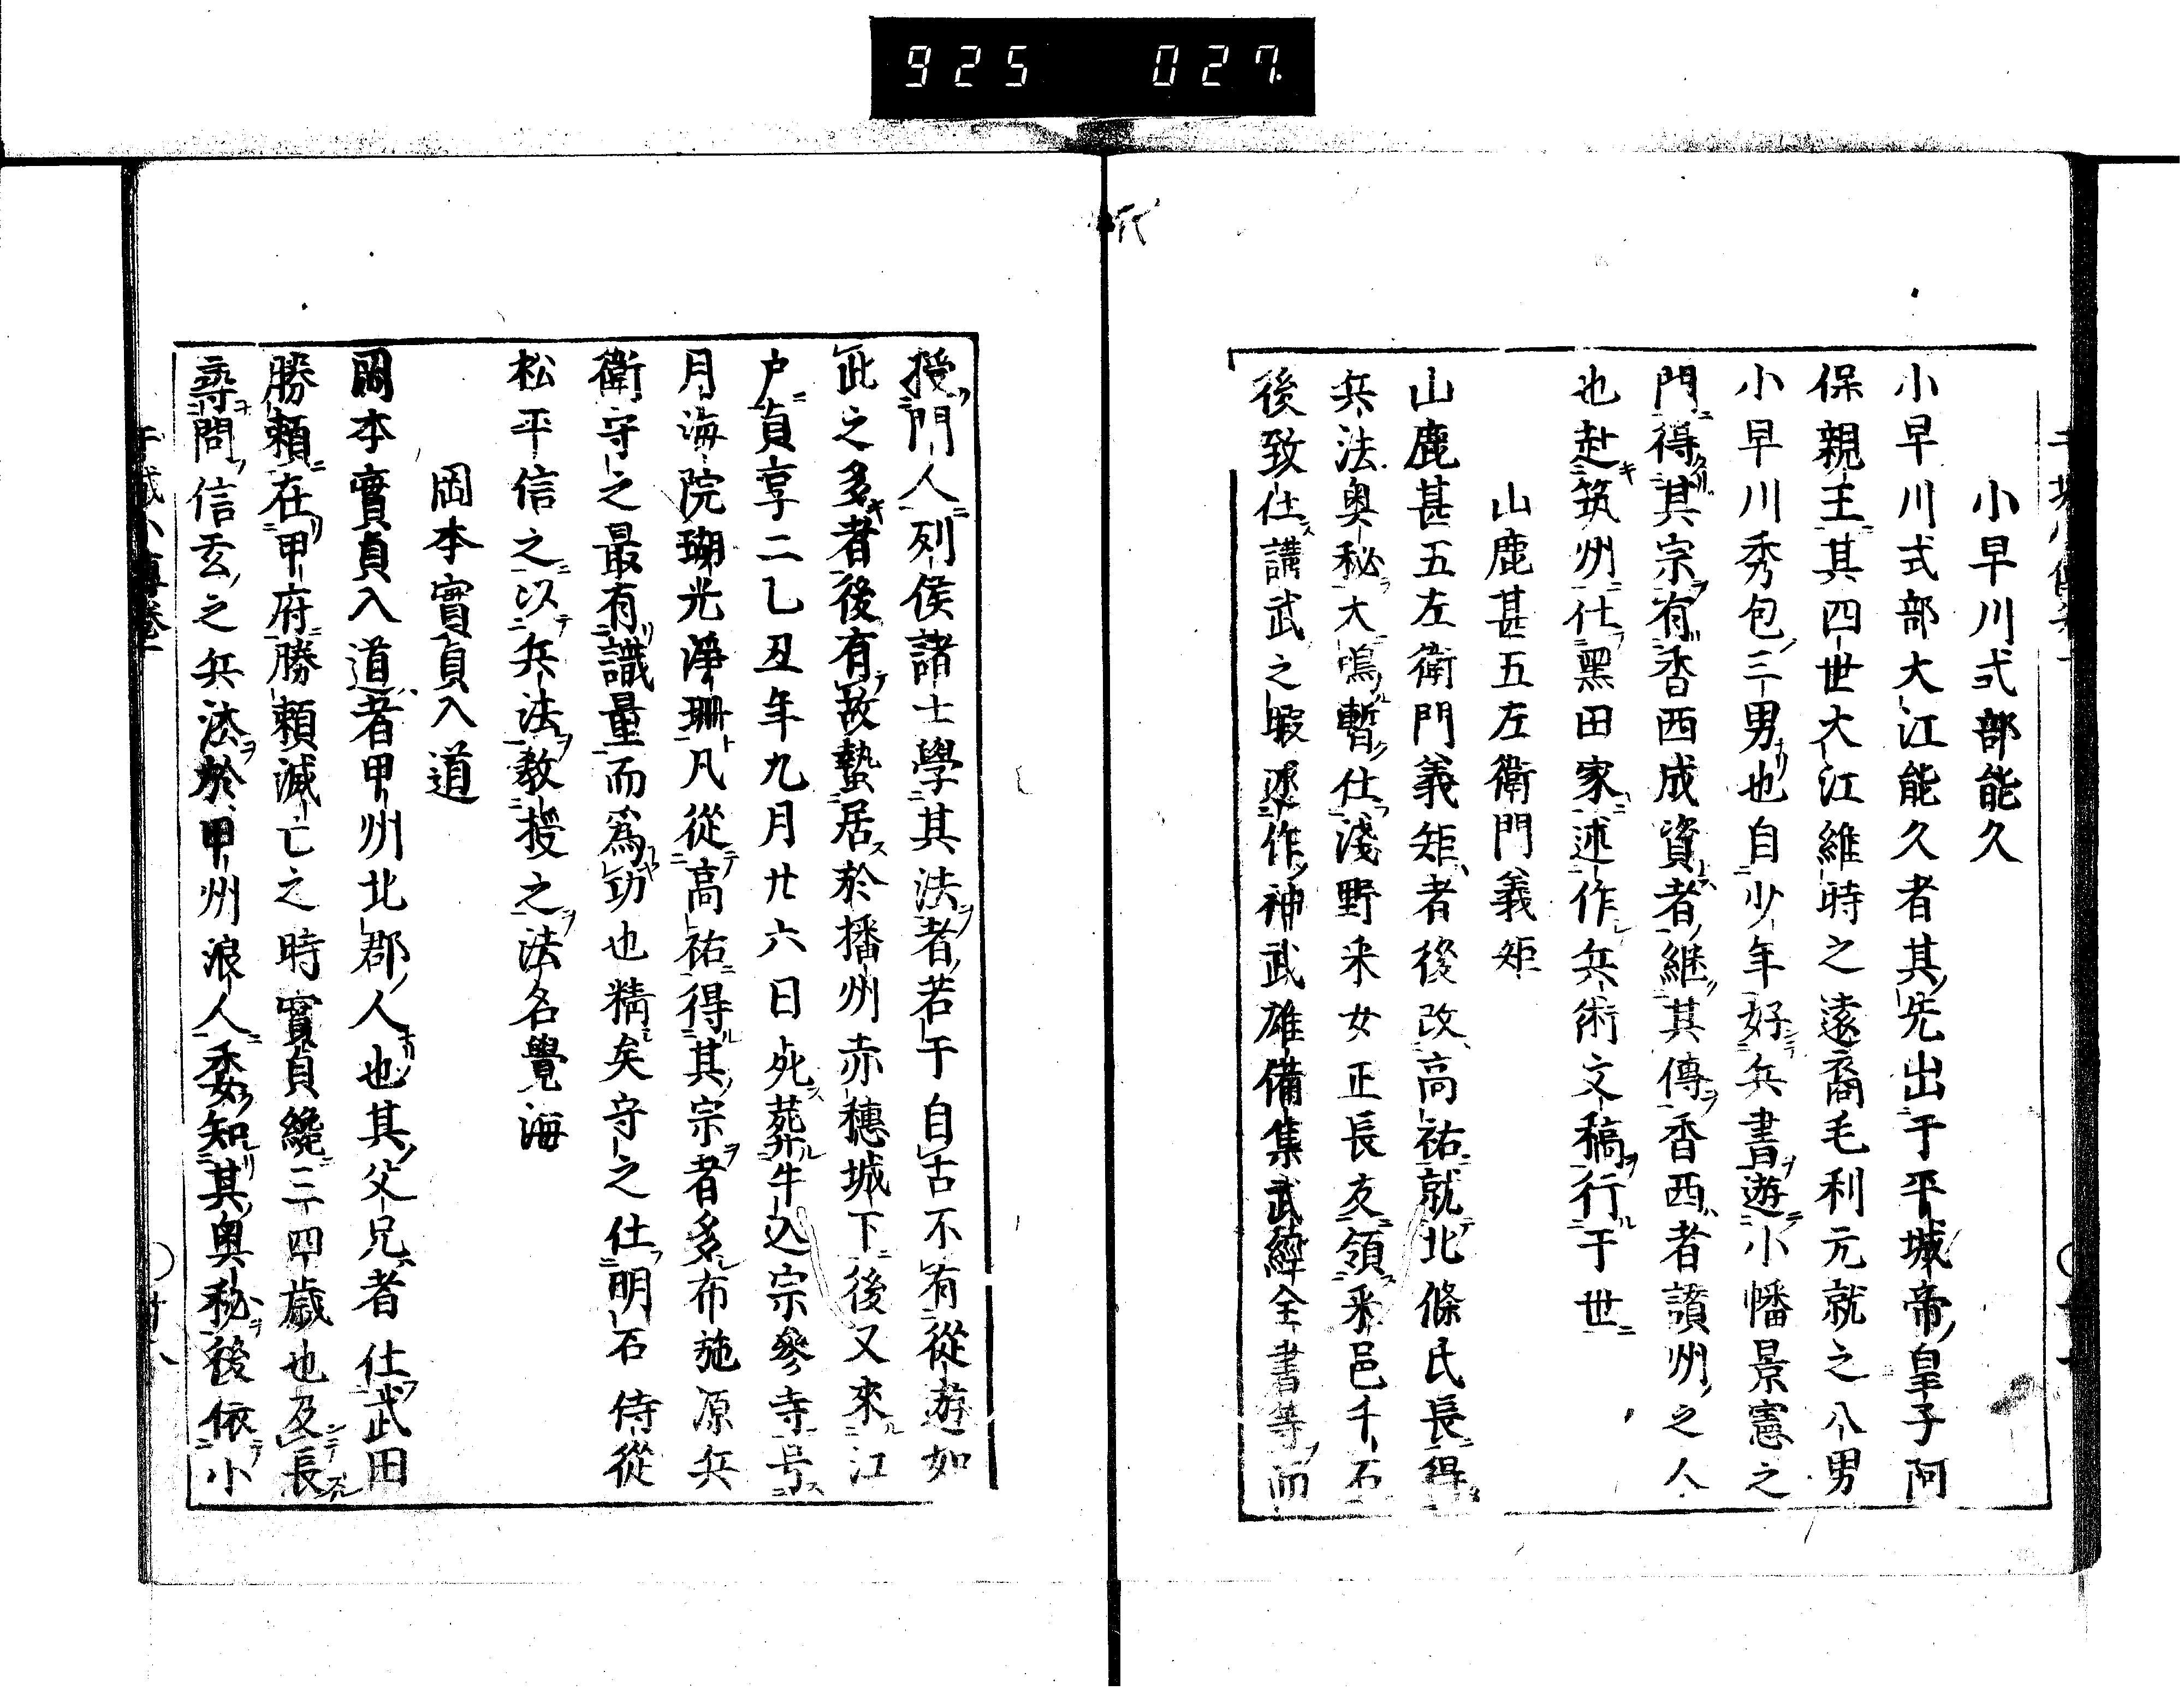 925 027
小早川式部能久
小早川式部大江能久者其先出于平城帝皇子阿
保親王其四世大江維時之遠裔毛利元就之八男
小早川秀包三男也自少年好兵書遊小幡景憲之
門得其宗有香西成資者継其傳香西者讃州之人
也赴筑州仕黒田家述作兵術文稿行于世
山鹿甚五左衛門義矩
山鹿甚五左衛門義矩者後改高祐就北條氏長得
兵法奥秘大鳴暫仕淺野采女正長友領釆邑千石
後致仕講武之暇遂作神武雄備集武經全書等而
授門人列侯諸士學其法者若干自古不有從遊如
此之多者後有故蟄居於播州赤穗城下後又來江
戸貞享二乙丑年九月廿六日死葬牛込宗參寺号
月海院瑚光浄珊凡從高祐得其宗者多布施源兵
衛守之最有識量而爲功也精矣守之仕明石侍從
松平信之以兵法教授之法名覺海
岡本實貞入道
岡本實貞入道者甲州北郡人也其父兄者仕武田
勝頼在甲府勝頼滅亡之時實貞纔三四歳也及長
尋問信玄之兵法於甲州浪人委知其奥秘後依小